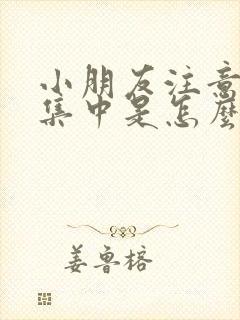 小朋友注意
集中是怎麼
姜鲁榕